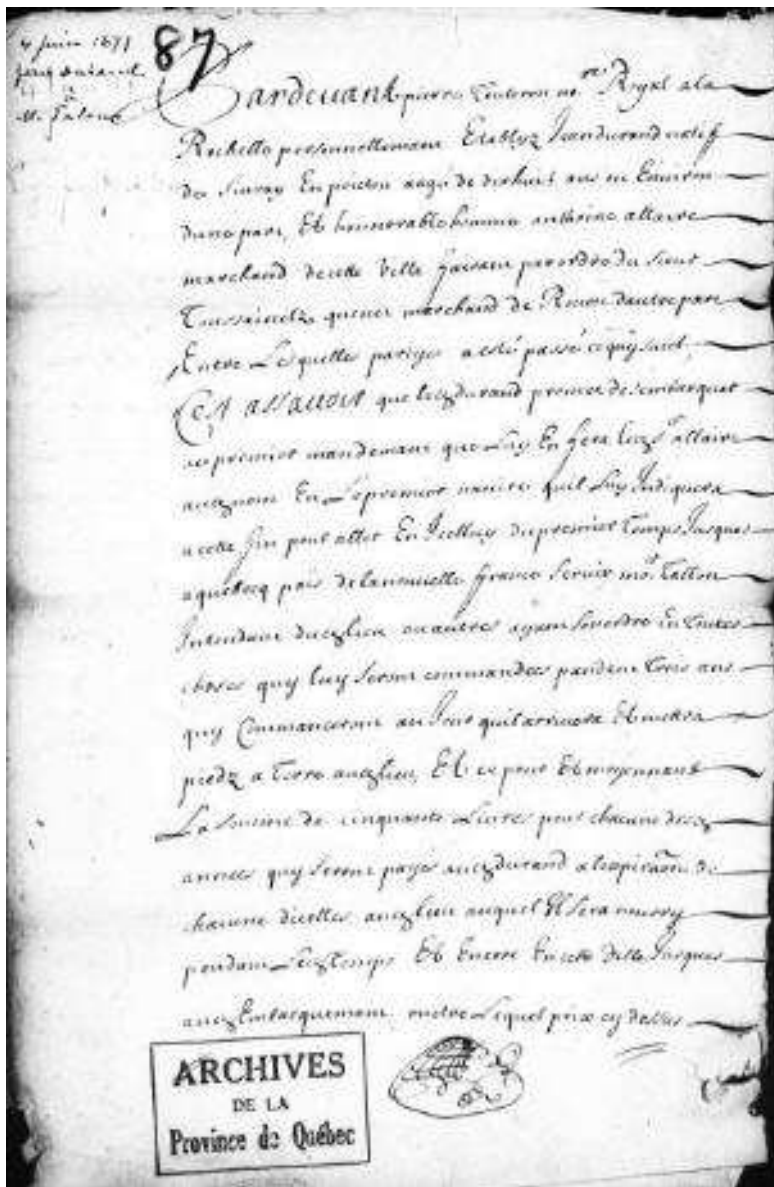 4 Juin 1671
Jean durand
Mr Talon
87
Pardevant pierre Teuleron nore Royal a la
Rochelle personnellemant Establyz Jean durand natif
de En poictou aagé de dixhuit ans ou Environ
dune part, Et honnorable homme anthoine allaire
marchand de cette Ville faisant par ordre du sieur
Toussainct quenet marchand de Rouen dautre part
Entre Lesquelles partyes a esté passé ce quy suict
Cest assavoir que durand promect de sembarquer
au premier mandemant que Luy En fera allaire
nom En Le premier navire quil Luy Indiquera
a cette fin pour aller En Icelluy du premier Temps Jusques
a quebecq païs de la nouvelle france Servir mor Tallon
Intendant lieu ou autres ayant son ordre En Toutes
choses quy luy seront commandees pandant Trois ans
quy Commanceront au Jour quil arrivera Et mettra
piedz a Terre lieu, Et ce pour Et moyennant
La somme de cinquante Livres pour chacune
annees quy seront payé durand a lexpiraon de
chacune dicelles lieu auquel Il sera nourry
pendant Temps Et Encore En cette Ville Jusques
Embarquement, outre Lequel prix cy dessus
ARCHIVES
DE LA
Province de Québec